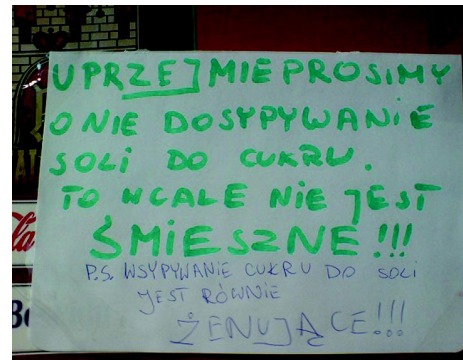 UPRZEJMIE PROSIMY
O NIE DOSYPYWANIE
SOLI DO CUKRU.
TO WCALE NIE JEST
ŚMIESZNE!!!
P.S. WSYPYWANIE CUKRU DO SOLI
JEST RÓWNIE
ŻENUJĄCE!!!